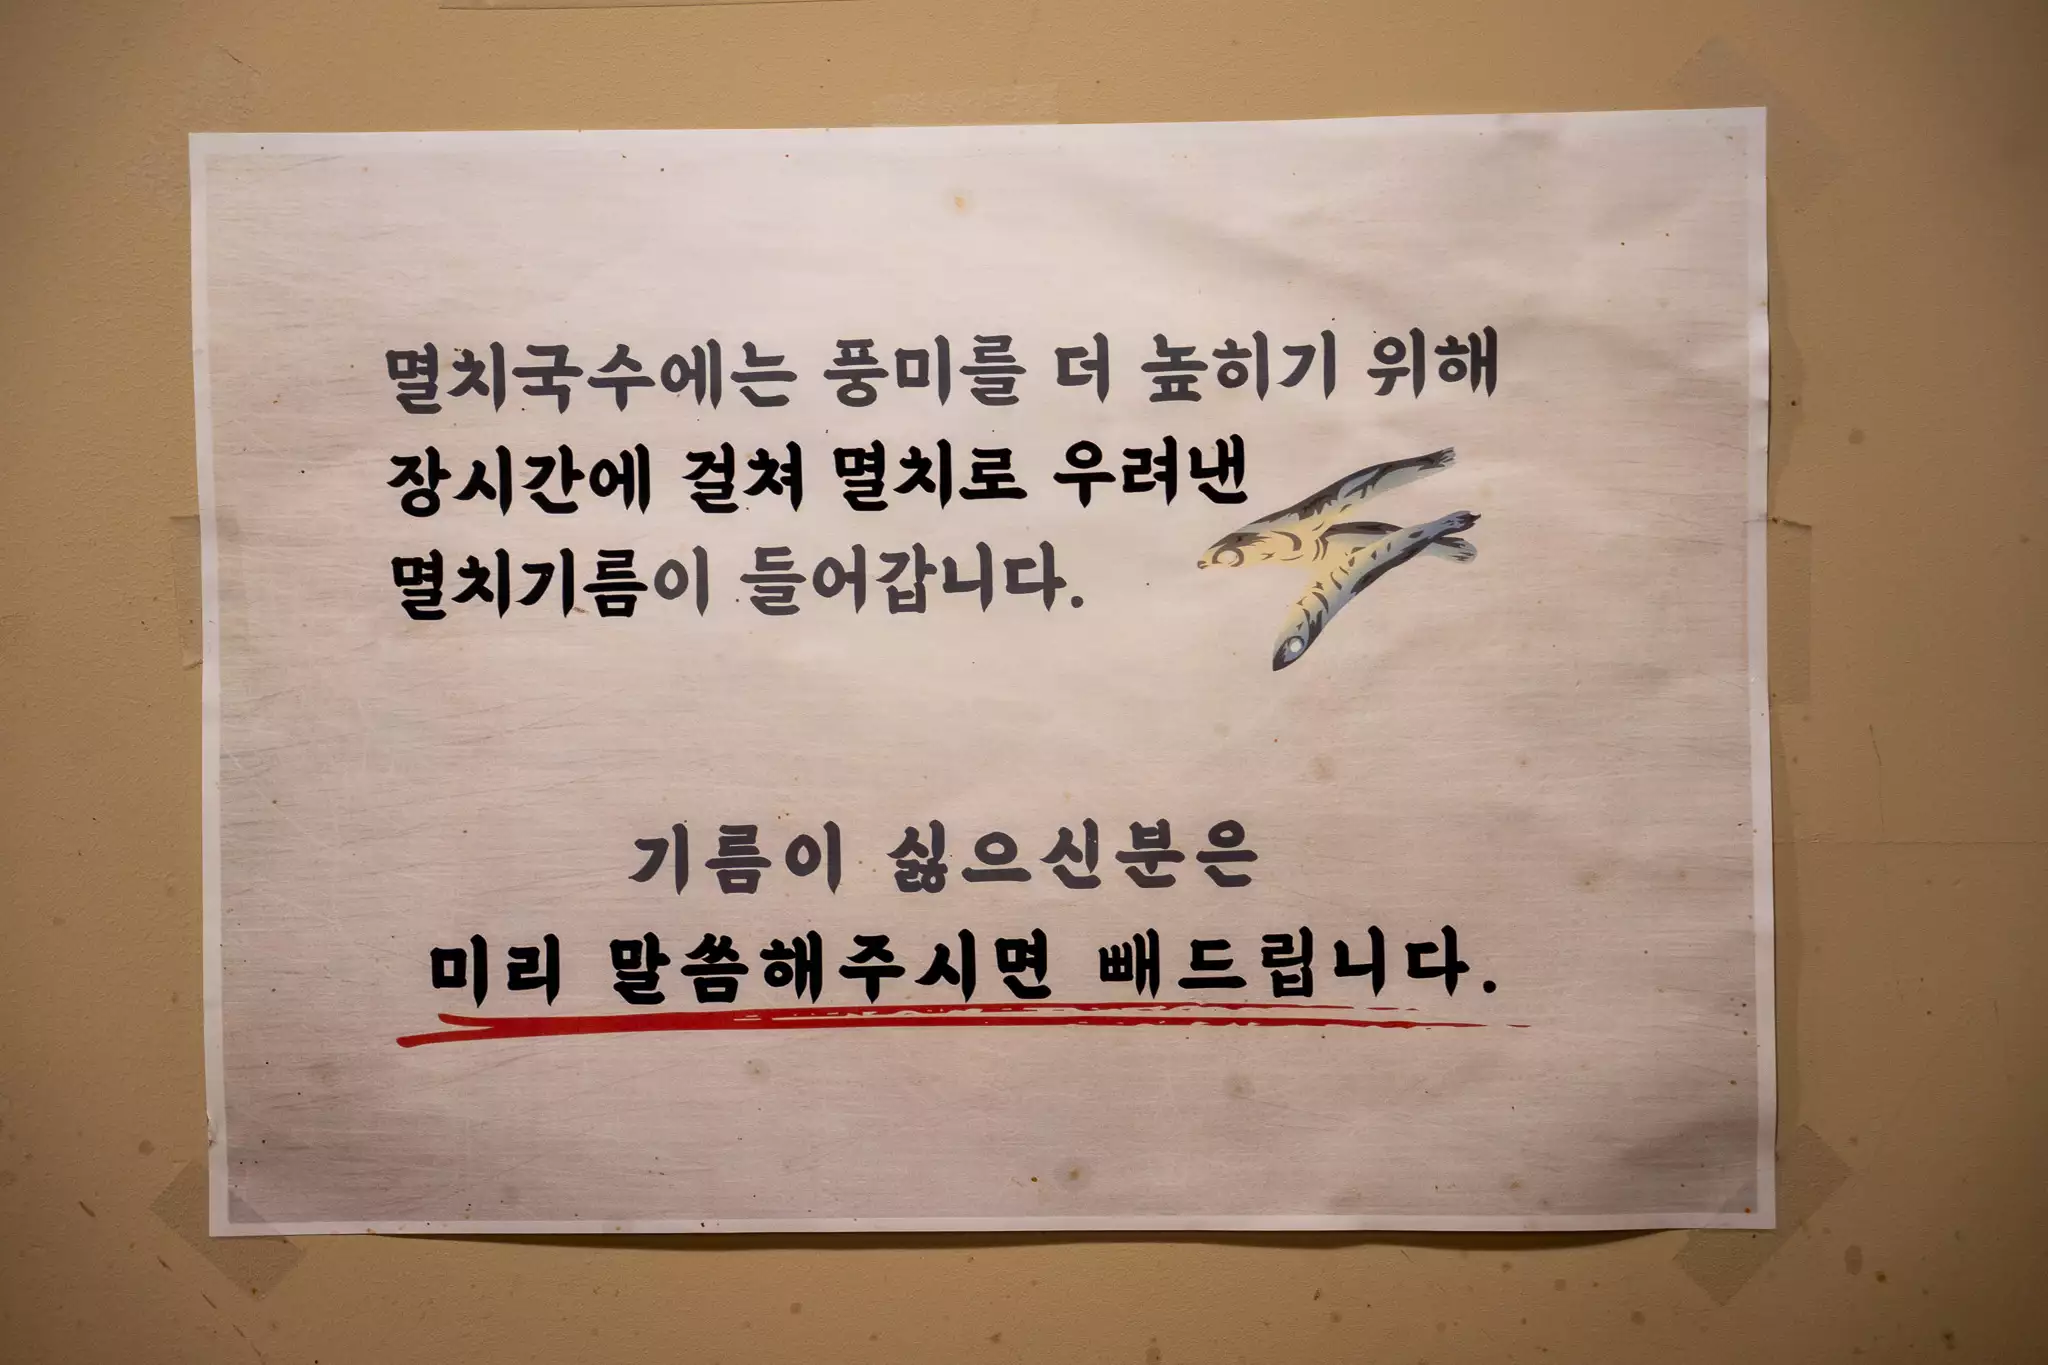 멸치국수에는 풍미를 더 높히기 위해
장시간에 걸쳐 멸치로 우려낸
멸치기름이 들어갑니다.
기름이 싫으신분은
미리 말씀해주시면 빼드립니다.